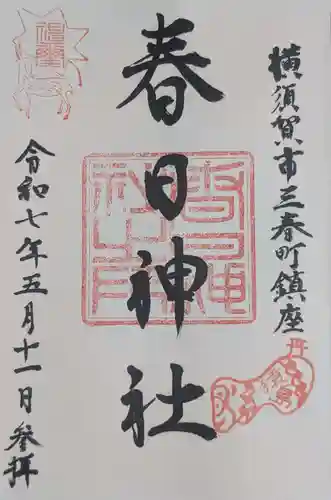 横須賀市三春町鎮座
春日神社
令和七年五月十一日参拝